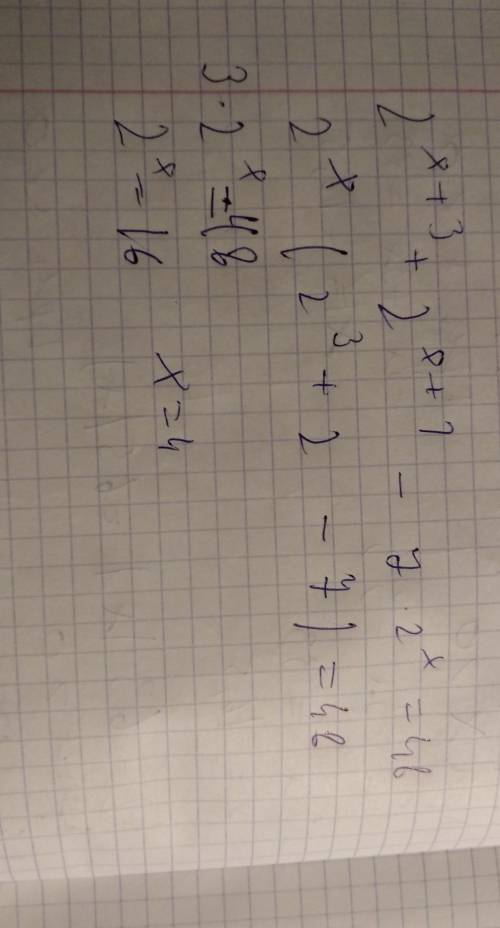 2^{x+3} + 2^{x+1} - 7 · 2^x = 48
2^x (2^3 + 2 - 7) = 48
3 · 2^x = 48
2^x = 16 x = 4